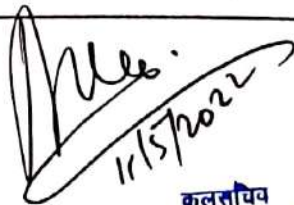 11/5/2022
कुलसचिव